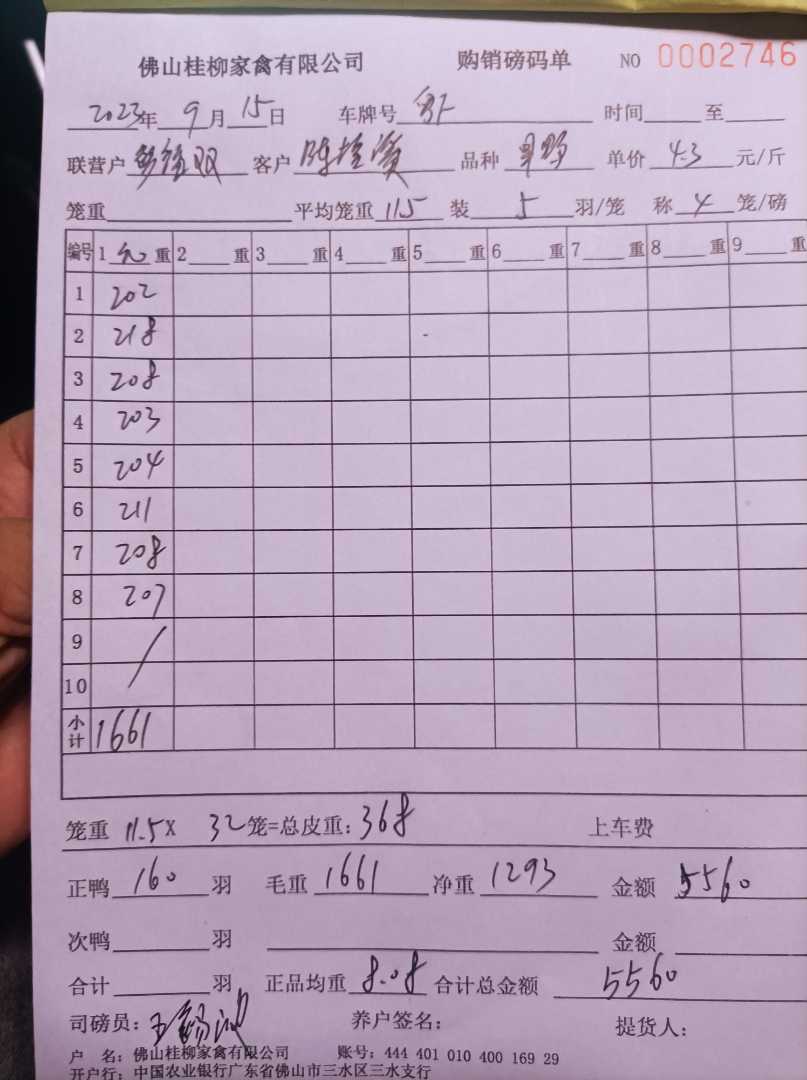 佛山桂柳家禽有限公司 购销磅码单 NO 0002746
2023年 9 月 15 日 车牌号 时间 至
联营户 客户 品种 单价 4.3 元/斤
笼重 平均笼重 11.5 装 5 羽/笼 称 4 笼/磅
编号 1 重 2 重 3 重 4 重 5 重 6 重 7 重 8 重 9 重
1 202
2 218
3 208
4 203
5 204
6 211
7 208
8 207
9
10
小计 1661
笼重 11.5X 32笼=总皮重: 368 上车费
正鸭 160 羽 毛重 1661 净重 1293 金额 5560
次鸭 羽 金额
合计 羽 正品均重 8.08 合计总金额 5560
司磅员: 养户签名: 提货人:
户 名: 佛山桂柳家禽有限公司 账号: 444 401 010 400 169 29
开户行: 中国农业银行广东省佛山市三水区三水支行